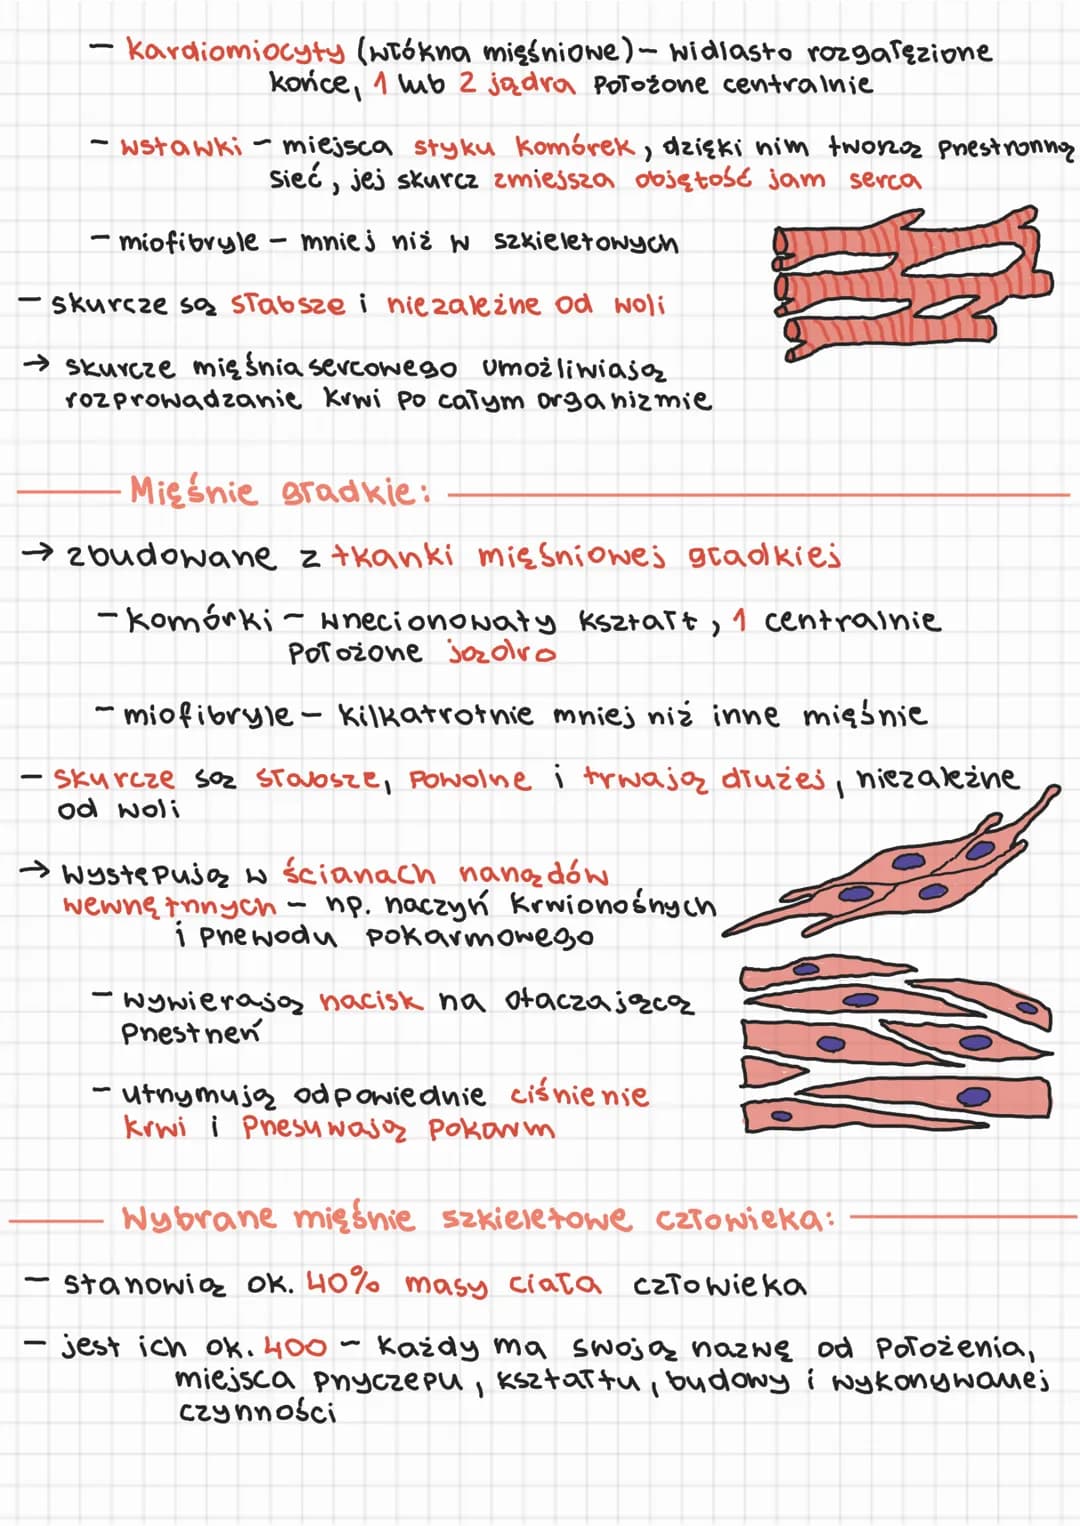 - Kardiomiocyty (włókna mięśniowe) - widlasto rozgałęzione
końce, 1 lub 2 jądra położone centralnie
- wstawki - miejsca styku komórek, dzięki nim tworzą przestronną
sieć, jej skurcz zmiejsza objętość jam serca
- miofibryle - mniej niż w szkieletowych
- skurcze są słabsze i niezależne od woli
→ skurcze mięśnia sercowego umożliwiają
rozprowadzanie krwi po całym organizmie
Mięśnie gładkie:
→ zbudowane z tkanki mięśniowej gładkiej
- komórki - wrzecionowaty kształt, 1 centralnie
położone jądro
- miofibryle - kilkatrotnie mniej niż inne mięśnie
- skurcze są słabsze, powolne i trwają dłużej, niezależne
od woli
→ Występują w ścianach narządów
wewnętrznych - np. naczyń krwionośnych
i przewodu pokarmowego
- wywierają nacisk na otaczającą
przestrzeń
- utrzymują odpowiednie ciśnienie
krwi i przesuwają pokarm
Wybrane mięśnie szkieletowe człowieka:
- stanowią ok. 40% masy ciała człowieka
- jest ich ok. 400 - każdy ma swoją nazwę od położenia,
miejsca przyczepu, kształtu, budowy i wykonywanej
czynności